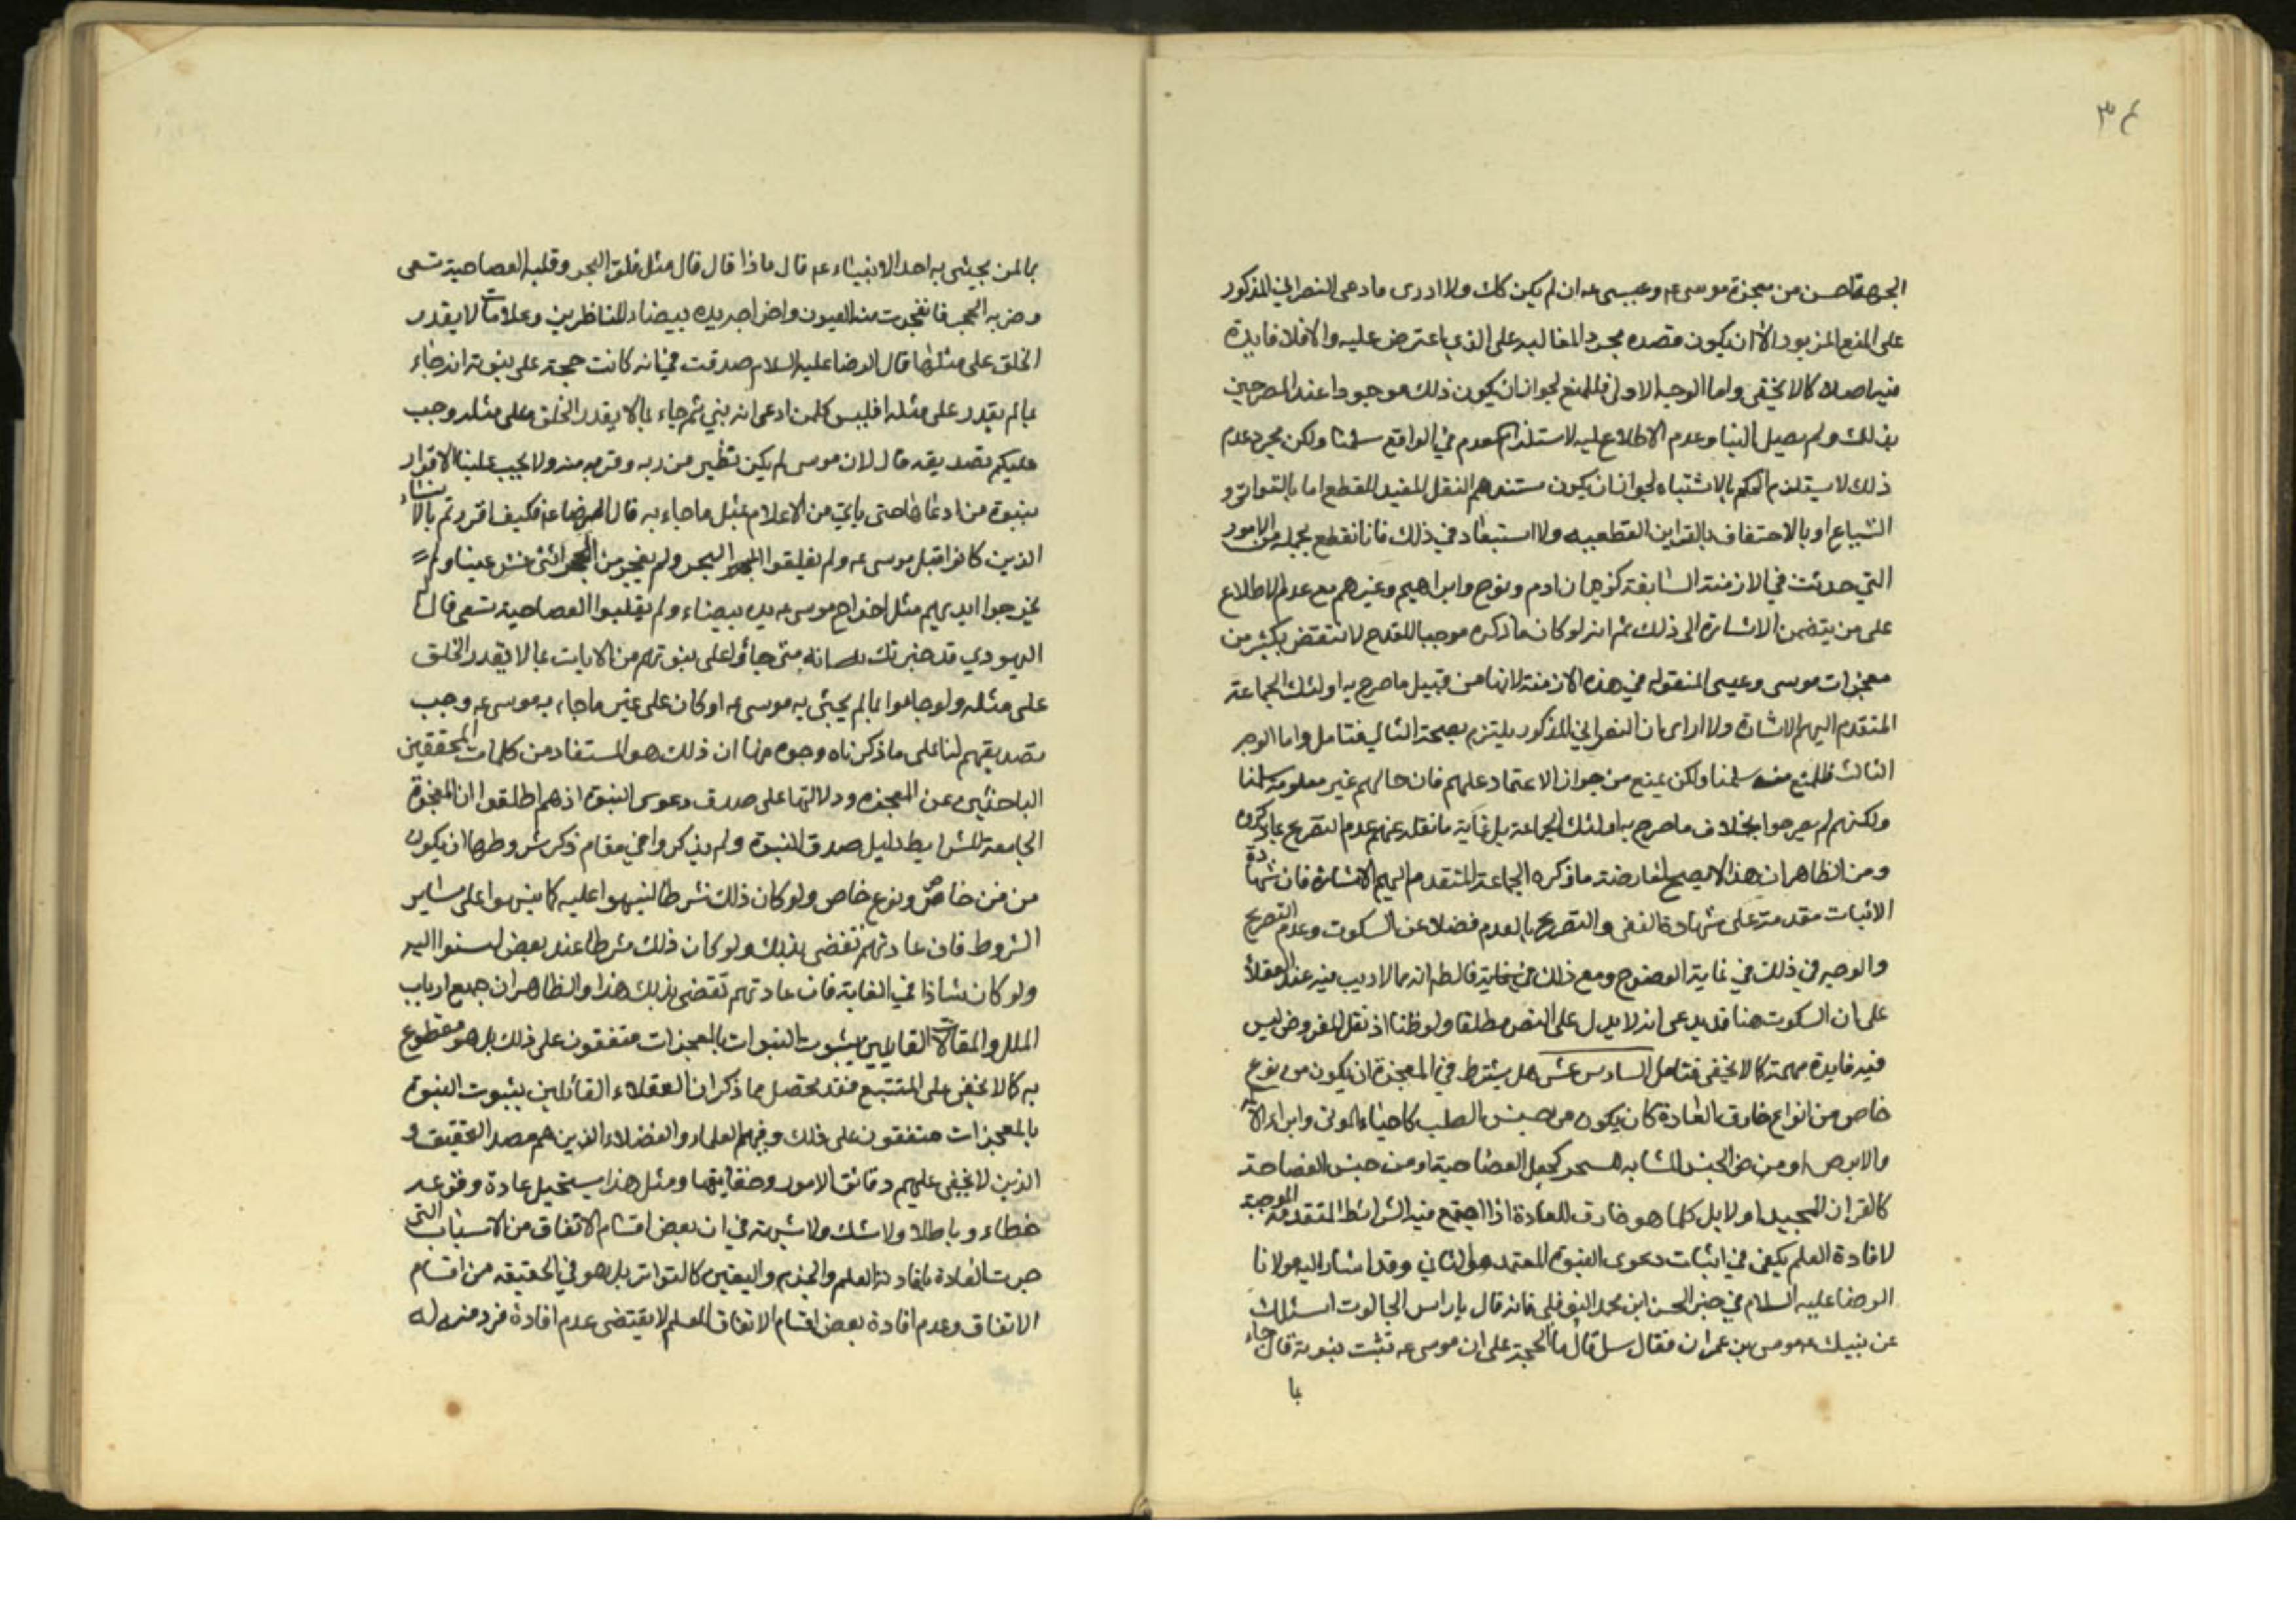 ٣٤
الجهة احسن من معجزة موسى ع وعيسى ع ان لم يكن كك ولا ادرى ما دعى النصرانى المذكور
على المنع المزبور الا ان يكون قصده مجرد المغالبه على الذى اعترض عليه والا فلا فايدة
فيه اصلا كما لا يخفى واما الوجه الاولى فللمنع لجواز ان يكون ذلك موجودا عند المصرحين
بذلك ولم يصل الينا وعدم الاطلاع عليه لا يستلزم العدم في الواقع سلمنا ولكن مجرد عدم
ذلك لا يستلزم الحكم بالاشتباه لجواز ان يكون مستندهم النقل المفيد للقطع اما بالتواتر و
الشياع او بالاحتفاف بالقراين القطعيه ولا استبعاد في ذلك فانا نقطع بجمله من الامور
التي حدثت في الازمنة السابقة ككون ادم ونوح وابراهيم وغيرهم مع عدم الاطلاع
على من يتضمن الاشارة الى ذلك ثم انه لو كان ما ذكره موجبا للقدح لانتقض بكثير من
معجزات موسى وعيسى المنقوله في هذه الازمنة لانها من قبيل ما صرح به اولئك الجماعة
المتقدم اليهم الاشارة ولا ارى ان النصرانى المذكور يلتزم بصحة التالي فتامل واما الوجه
الثالث فللمنع منه سلمنا ولكن يمنع من جواز الاعتماد عليهم فان حالهم غير معلومة سلمنا
ولكنهم لم يصرحوا بخلاف ما صرح به اولئك الجماعة بل غاية ما نقله عنهم عدم التصريح بما ذكروه
ومن الظاهر ان هذا لا يصح لمعارضة ما ذكره الجماعة المتقدم اليهم الاشارة فان شهادة
الاثبات مقدمة على شهادة النفى والتصريح بالعدم فضلا عن السكوت وعدم التصريح
والوجه في ذلك في غاية الوضوح ومع ذلك في غاية فالط انه مما لا ريب فيه عند العقلاء
على ان السكوت هنا قد يدعى انه لا يدل على النص مطلقا ولو ظنا اذ نقل المفروض ليس
فيه فايدة مهمة كما لا يخفى فتامل السادس عشر هل يشترط في المعجزة ان يكون من نوع
خاص من انواع خارق العادة كان يكون من جنس الطب كاحياء الموتى وابراء الاكمه
والابرص او من الجنس المشابه للسحر كجعل العصا حية او من جنس الفصاحة
كالقران المجيد او لا بل كلما هو خارق للعادة اذا اجتمع فيه الشرائط المتقدمة الموجبة
لافادة العلم يكفى في اثبات دعوى النبوة المعتمد هو الثاني وقد اشار اليه مولانا
الرضا عليه السلام في خبر الحسن ابن محمد النوفلى فانه قال يا راس الجالوت اسئلك
عن نبيك موسى بن عمران فقال سل قال ما الحجة على ان موسى ع تثبت نبوته قال جاء
بما
بما لم يجيئى به احد الانبياء ع قال ماذا قال قال مثل فلق البحر وقلبه العصا حية تسعى
وضربه الحجر فانفجرت منه العيون واخراجه يده بيضاء للناظرين وعلامات لا يقدر
الخلق على مثلها قال الرضا عليه السلام صدقت في انه كانت حجة على نبوته انه جاء
بما لم يقدر على مثله افليس كلمن ادعى انه نبي ثم جاء بما لا يقدر الخلق على مثله وجب
عليكم تصديقه قال لان موسى لم يكن نظير من ربه وقربه منه ولا يجب علينا الاقرار
بنبوة من ادعاها حتى ياتي من الاعلام بمثل ما جاء به قال الرضا ع فكيف اقررتم بالانبياء
الذين كانوا قبل موسى ع ولم يفلقوا البحر ولم يفجر من الحجر اثنتى عشر عينا ولم
يخرجوا ايديهم مثل اخراج موسى ع يده بيضاء ولم يقلبوا العصا حية تسعى قال له
اليهودي قد خبرتك انه متى جاؤا على نبوتهم من الايات بما لا يقدر الخلق
على مثله ولو جاءوا بما لم يجئى به موسى ع او كان على غير ما جاء به موسى ع وجب
تصديقهم لنا على ما ذكرناه وجوه منها ان ذلك هو المستفاد من كلمات المحققين
الباحثين عن المعجزه ودلالتها على صدق دعوى النبوة اذ هم اطلقوا ان المعجزة
الجامعة للشرايط دليل صدق النبوة ولم يذكروا في مقام ذكر شروطها ان يكون
من فن خاص ونوع خاص ولو كان ذلك شرطا لنبهوا عليه كما ينبهوا على ساير
الشروط فان عادتهم تقضى بذلك ولو كان ذلك شرطا عند بعض لنبهوا اليه
ولو كان شاذا في الغاية فان عادتهم تقتضى بذلك هذا والظاهر ان جميع ارباب
الملل والمقالات القايلين بثبوت النبوات بالمعجزات متفقون على ذلك بل هو مقطوع
به كما لا يخفى على المتتبع فقد تحصل مما ذكر ان العقلاء القائلين بثبوت النبوة
بالمعجزات متفقون على ذلك وفيهم العلماء والفضلاء الذين هم مصدر التحقيق و
الذين لا يخفى عليهم دقائق الامور وخفاياها ومثل هذا يستحيل عادة وقوعه
خطاء وباطلا ولا شك ولا شبهة في ان بعض اقسام الاتفاق من الاسباب التى
جرت العادة بافادة العلم والجزم واليقين كالتواتر بل هو في الحقيقه من اقسام
الاتفاق وعدم افادة بعض اقسام الاتفاق العلم لا يقتضى عدم افادة فرد منه له